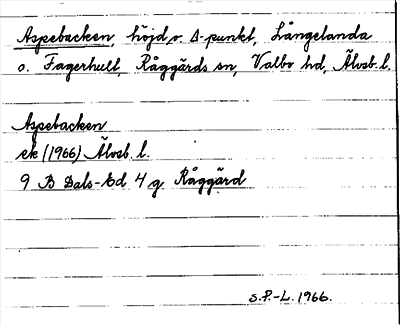 Aspebacken, höjd o. Δ-punkt, Långelanda
o. Fagerhult, Råggärds sn, Valbo hd, Älvsb. l.
Aspebacken
ek (1966) Älvsb. l.
9 B Dals-Ed 4 g Råggärd
S.P.-L. 1966.